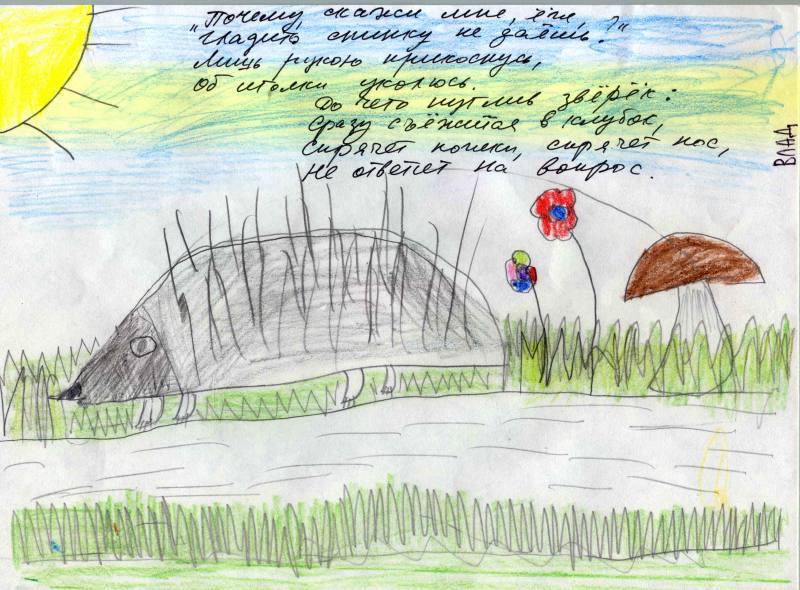 "Почему, скажи мне, ёжик,
гладить спинку не даёшь?"
Лишь рукою прикоснусь,
Об иголки уколюсь.
До чего пуглив зверёк:
Сразу съёжится в клубок,
Спрячет ножки, спрячет нос,
Не ответит на вопрос.
ВЛАД